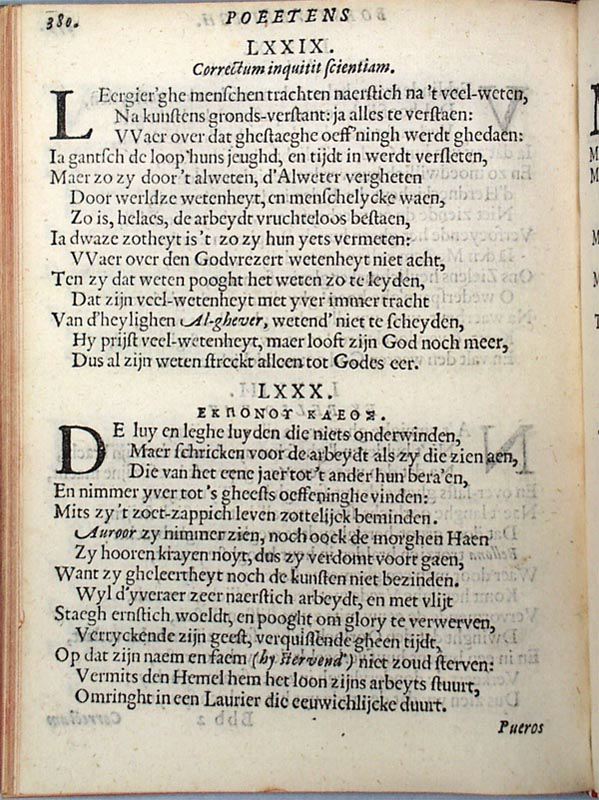 380. POEETENS
LXXIX.
Correctum inquitit scientiam.
LEergier'ghe menschen trachten naerstich na 't veel-weten,
Na kunstens gronds-verstant: ja alles te verstaen:
VVaer over dat ghestaeghe oeff'ningh werdt ghedaen:
Ia gantsch de loop'huns jeughd, en tijdt in werdt versleten,
Maer zo zy door't alweten, d'Alweter vergheten
Door werldze wetenheyt, en menschelycke waen,
Zo is, helaes, de arbeydt vruchteloos bestaen,
Ia dwaze zotheyt is't zo zy hun yets vermeten:
VVaer over den Godvrezert wetenheyt niet acht,
Ten zy dat weten pooght het weten zo te leyden,
Dat zijn veel-wetenheyt met yver immer tracht
Van d'heylighen Al-ghever, wetend' niet te scheyden,
Hy prijst veel-wetenheyt, maer looft zijn God noch meer,
Dus al zijn weten streckt alleen tot Godes eer.
LXXX.
ΕΚΠΟΝΟΥ ΚΛΕΟΣ.
DE luy en leghe luyden die niets onderwinden,
Maer schricken voor de arbeydt als zy die zien aen,
Die van het eene jaer tot't ander hun bera'en,
En nimmer yver tot's gheests oeffeninghe vinden:
Mits zy't zoet-zappich leven zottelijck beminden.
Auroor zy nimmer zien, noch oock de morghen Haen
Zy hooren krayen noyt, dus zy verdomt voort gaen,
Want zy gheleertheyt noch de kunsten niet bezinden.
Wyl d'yveraer zeer naerstich arbeydt, en met vlijt
Staegh ernstich woeldt, en pooght om glory te verwerven,
Verryckende zijn geest, verquistende gheen tijdt,
Op dat zijn naem en faem (hy stervend') niet zoud sterven:
Vermits den Hemel hem het loon zijns arbeyts stuurt,
Omringht in een Laurier die eeuwichlijcke duurt.
Pueros